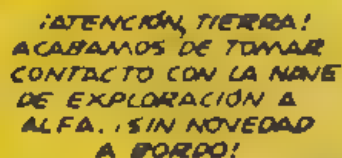 ¡ATENCIÓN, TIERRA!
ACABAMOS DE TOMAR
CONTACTO CON LA NAVE
DE EXPLORACIÓN A
ALFA. ¡SIN NOVEDAD
A BORDO!